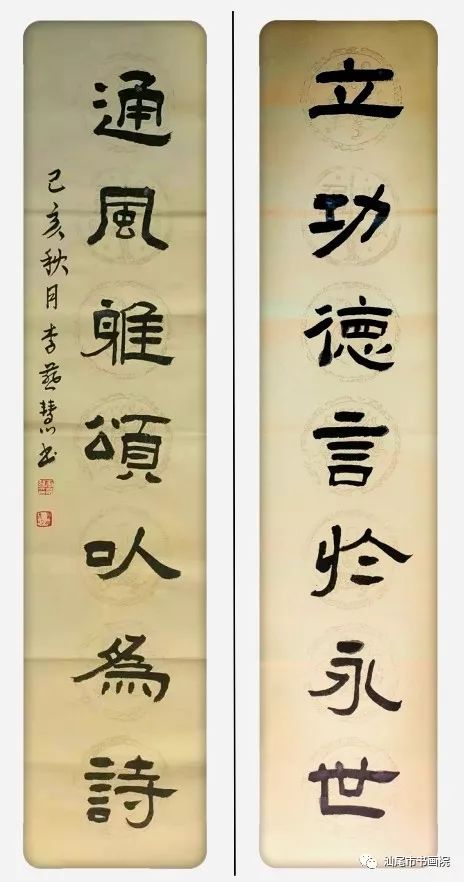 立功德言於永世
通風雅頌以為詩
己亥秋月李燕慧书
汕尾市书画院